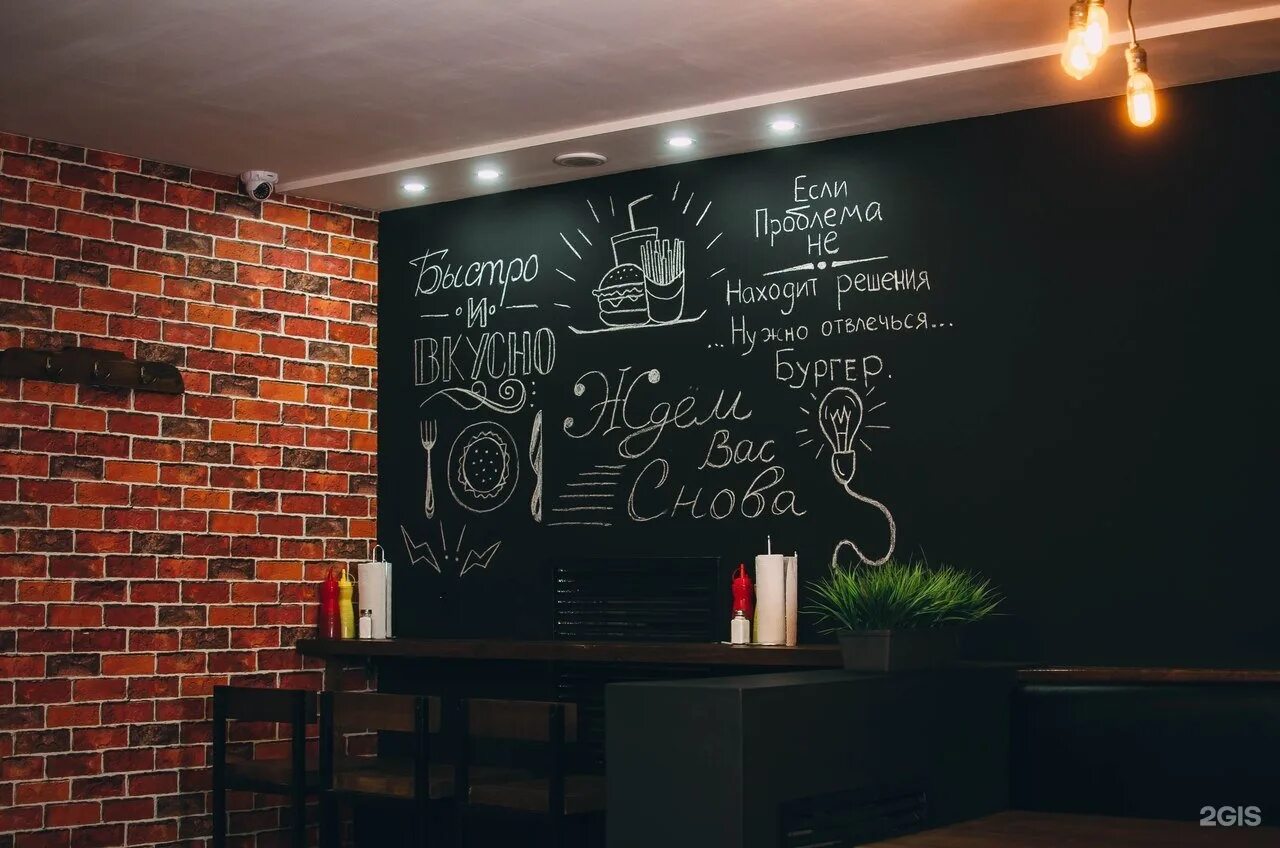 Быстро
и
ВКУСНО
Если
Проблема
не
Находит решения
...Нужно отвлечься...
Бургер.
Ждём
Вас
Снова
2GIS